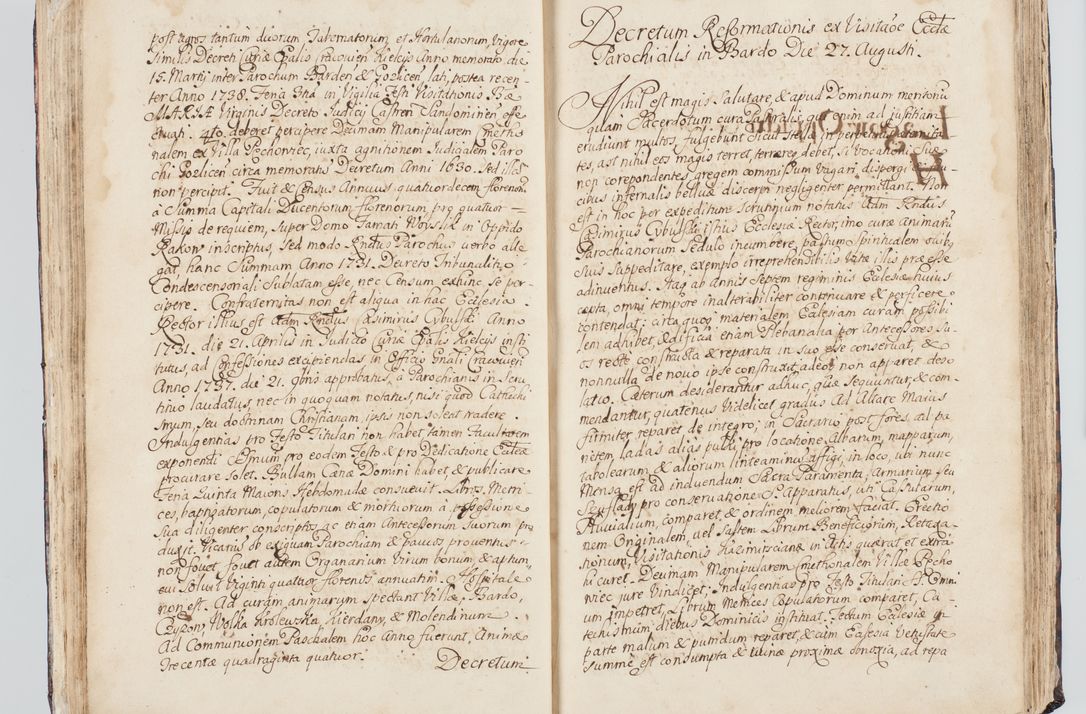 post agros tantum duorum Tabernatorum et Hortulanorum, Vigore
similis Decreti Curiæ Epalis Cracovien Kielcijs Anno memorato die
15. Martij inter Parochum Barden & Gozlicen, lati, postea recen-
ter Anno 1738. Feria 3tia in Vigilia Festi Visitationis B:æ
MARIÆ Virginis Decreto Judicij Castren Sandomirien offe
ctuati. 4to. deberet percipere Decimam Manipularem Metho
nalem ex Villa Pęchoviec, iuxta agnitionem Judicialem Paro
chi Gozlicen circa memoratū Decretum Anni 1630. Sed illā
non percipit. Fuit & Census Annuus quatuordecem florenorū
à Summa Capitali Ducentorum florenorum pro quatuor
Missis de requiem, super Domo Famati Woyslik in Oppido
Rakow inscriptus, sed modo Rndus Parochus verbo alle
gat, hanc Summam Anno 1731. Decreto Tribunalitio
Condescensorali sublatam esse, nec Censum exhinc se per-
cipere. Confraternitas non est aliqua in hac Ecclesia.
Rector illius est Adm Rndus Casimirus Cybulski Anno
1731. die 21. Aprilis in Judicio Curiæ Epalis Kielcijs insti
tutus, ad Confessiones excipiendas in Officio Gnali Cracovien
Anno 1737. die 21. 9bris approbatus, à Parochianis in Scru
tinio laudatus, nec in quoquam notatus, nisi quod Cathechi
smum, seu doctrinam Christianam, ipsis non soleat tradere.
Indulgentias pro Festo Titulari non habet tamen Facultatem
exponendi SSmum pro eodem Festo & pro Dedicatione Ecclæ
procurare solet. Bullam Cænæ Domini habet & publicare
Feria Quinta Maioris Hebdomadæ consuevit. Libros Metri-
ces, baptizatorum, copulatorum & mortuorum à possessione
sua diligenter conscriptos, ac etiam Antecessorum suorum pro
duxit. Vicarios ob exiguam Parochiam & paucos proventus
non fovet, fovet autem Organarium Virum bonum, & aptum,
cui solvit Viginti quatuor florenos annuatim. Hospitale
non est. Ad curam animarum spectant Villæ, Bardo,
Czyżow, Wolka Krolewska, Kierdany, & Molendinum.
Ad Communionem Paschalem hoc Anno fuerunt, Animæ
Trecentæ quadraginta quatuor.
Decretum
Decretum Reformationis ex Visitaõe Ecclæ
Parochialis in Bardo Die 27. Augusti.
Nihil est magis salutare, & apud Dominum meritoriū
quam Sacerdotum cura Pastoralis, qui enim ad justitiam
erudiunt multos, fulgebunt sicut stellæ in perpetuas æternita
tes, ast nihil eos magis terret, terrere debet, si Vocationi suæ
non corepondentes gregem commissum vagari, dispergi
cibus infernalis belluæ discerpi negligenter permittant. Non
est in hoc per expeditum Scrutinium notatus Adm Rndus
Casimirus Cybulski istius Ecclesiæ Rector, imo curæ animarū
Parochianorum sedulo incumbere, pastum spiritualem ovibꝫ
suis suppeditare, exemplo irreprehensibilis Vitæ illis præ esse
adinventus. Hæc ab annis septem regiminis Ecclesiæ huius
cæpta, omni tempore inalterabiliter continuare & perficere
contendat; circa quos materialem Ecclesiam curam possibi
lem adhibet, & ædificia etiam Plebanalia per Antecessores Su
os recte constructa & reparata in suo esse conservat, &
nonnulla de novo ipse construxit, adeoq̃ non apparet deso
latio. Cæterum desiderantur adhuc, quæ sequuntur, & com-
mendantur, quatenus videlicet gradus ad Altare Maius
firmiter reparet de integro; in Sacrario post fores, ad pa
rietem, ladas aliàs pulki pro locatione Albarum, mapparum,
tobalearum & aliorum linteaminū affigi, in loco, ubi nunc
Mensa est ad induendum Sacra Paramenta, Armarium seu
Szuflady pro conservatione S. Apparatus, uti Casularum,
Pluvialium, comparet, & ordinem meliorem faciat. Erectio
nem Originalem, vel saltem Librum Beneficiorum, Retaxa-
tionum, Visitationis Kazimirscianæ in Actis quærat et extra
hi curet. Decimam Manipularem methonalem Villæ Pęcho
wiec jure vindicet; Indulgentias pro Festo Titulari SS. Omni
um impetret, Librum Metrices Copulatorum comparet, Ca-
techismum diebus Dominicis instituat. Tectum Ecclesiæ in
parte malum & putridum reparet, & cum Ecclesia vetustate
summe est consumpta & ruinæ proximæ obnoxia, ad repa